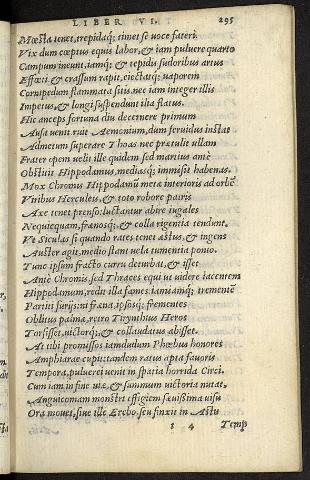 LIBER VI. 295
Mœsta tenet, trepidaq; timet se voce fateri.
Vix dum cœptus equis labor, & iam puluere quarto
Campum ineunt, iamq; & tepidis sudoribus artus
Effœti, & crassum rapit, eiectatq; vaporem
Cornipedum flammata sitis, nec iam integer illis
Impetus, & longi suspendunt ilia flatus.
Hic anceps fortuna diu decernere primum
Ausa venit ruit Aemonium, dum feruidus instat
Admetum superare Thoas nec prætulit vllam
Frater opem velit ille quidem sed martius ante
Obstitit Hippodamus, mediasq; immisit habenas.
Mox Chromis Hippodamū meta interioris ad orbē
Viribus Herculeis, & toto robore patris
Axe tenet prenso: luctantur abire iugales
Nequicquam, frænosq;, & colla rigentia tendunt.
Vt Siculas si quando rates tenet æstus, & ingens
Auster agit, medio stant vela tumentia ponto.
Tunc ipsum fracto curru deturbat, & isset
Ante Chromis, sed Thraces equi vt videre iacentem
Hippodamum, redit illa fames: iamiamq; trementē
Partiti furijs: ni fræna, ipsosq; frementes
Oblitus palmæ, retro Tirynthius Heros
Torsisset, victorq;, & collaudatus abisset.
At tibi promissos iamdudum Phœbus honores
Amphiaraë cupit: tandem ratus apta fauoris
Tempora, puluerei venit in spatia horrida Circi.
Cum iam in fine viæ, & summum victoria nutat,
Anguicomam monstri effigiem sæuissima visu
Ora mouet, siue ille Erebo, seu finxit in Astu
t 4 Temp